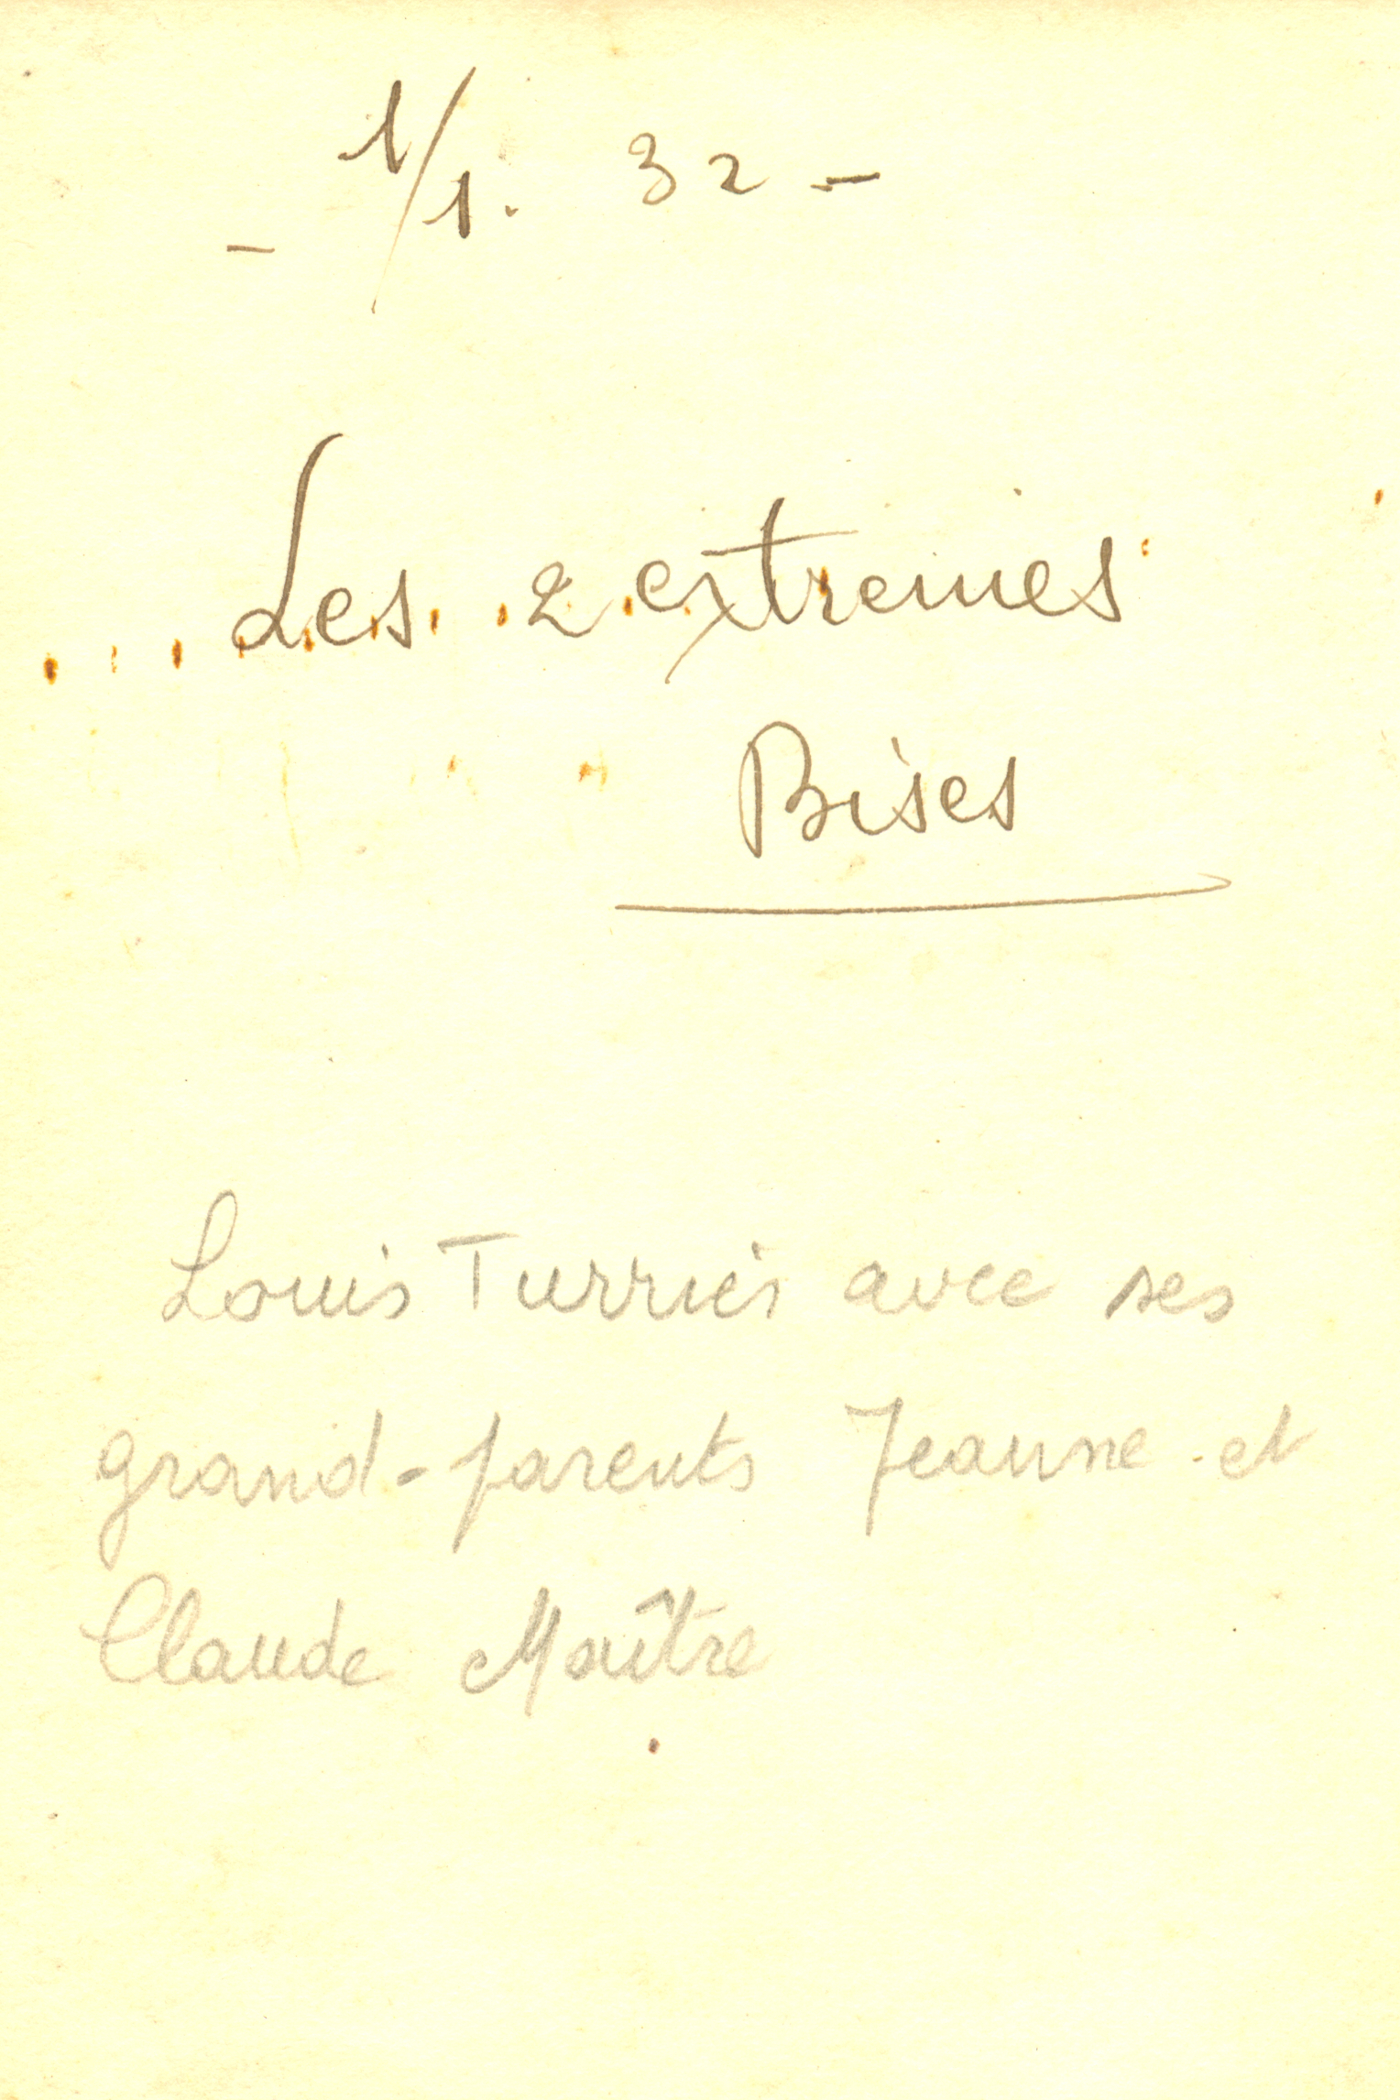 - 1/1. 32 -
Les 2 extremes
Bises
Louis Turriès avec ses
grand-parents Jeanne et
Claude Maître